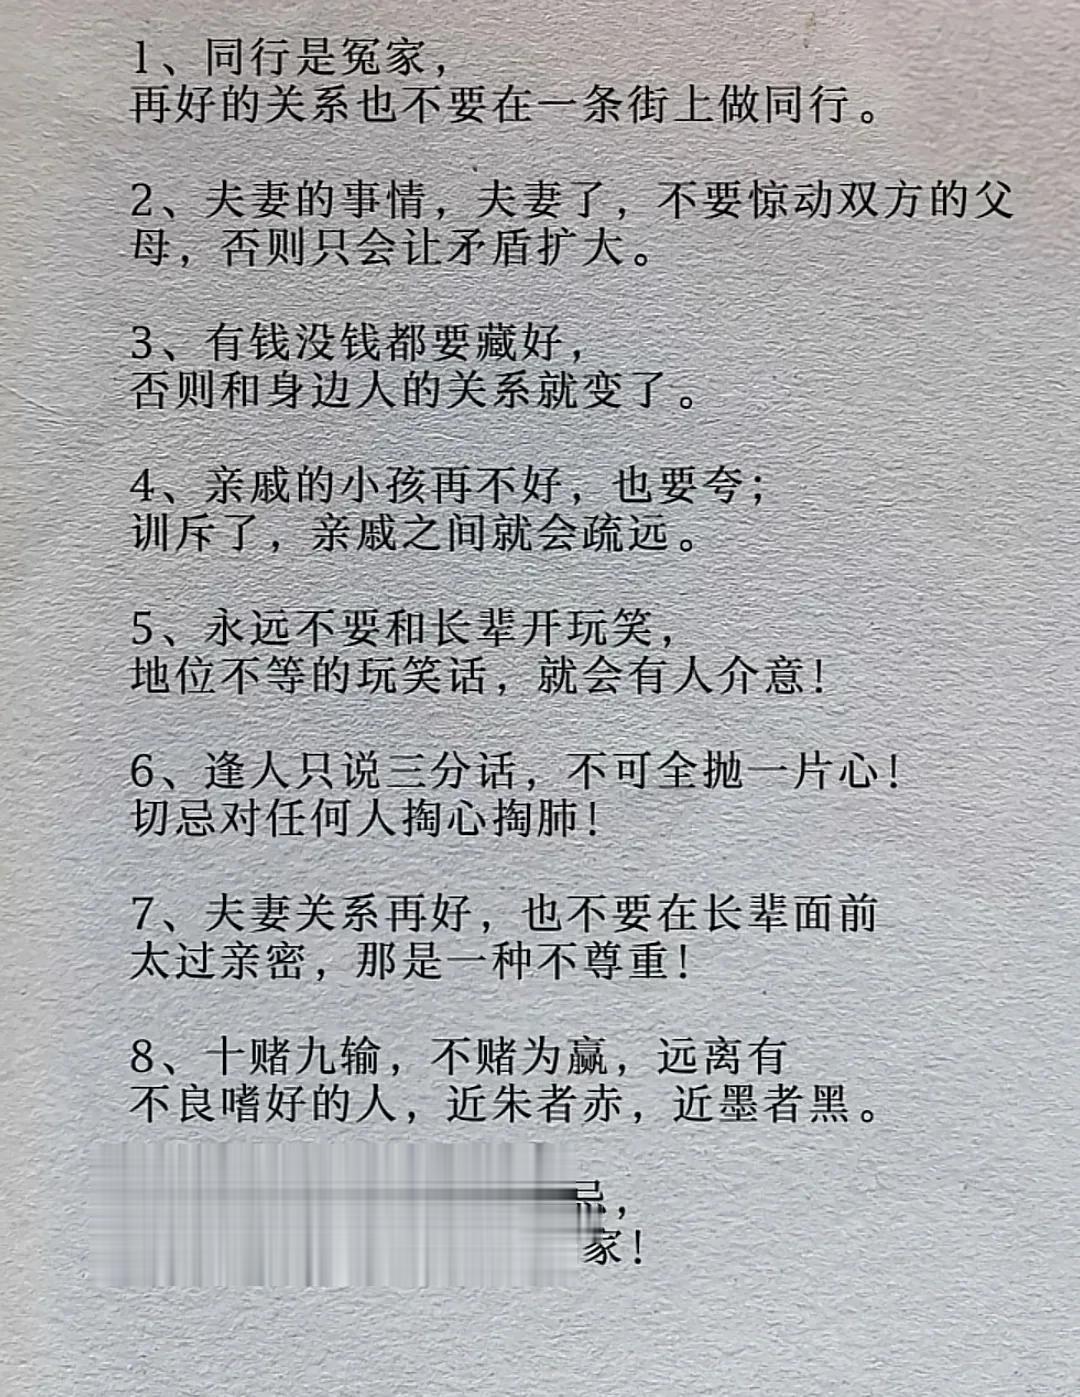 1、同行是冤家，
再好的关系也不要在一条街上做同行。
2、夫妻的事情，夫妻了，不要惊动双方的父
母，否则只会让矛盾扩大。
3、有钱没钱都要藏好，
否则和身边人的关系就变了。
4、亲戚的小孩再不好，也要夸；
训斥了，亲戚之间就会疏远。
5、永远不要和长辈开玩笑，
地位不等的玩笑话，就会有人介意！
6、逢人只说三分话，不可全抛一片心！
切忌对任何人掏心掏肺！
7、夫妻关系再好，也不要在长辈面前
太过亲密，那是一种不尊重！
8、十赌九输，不赌为赢，远离有
不良嗜好的人，近朱者赤，近墨者黑。
忌，
家！